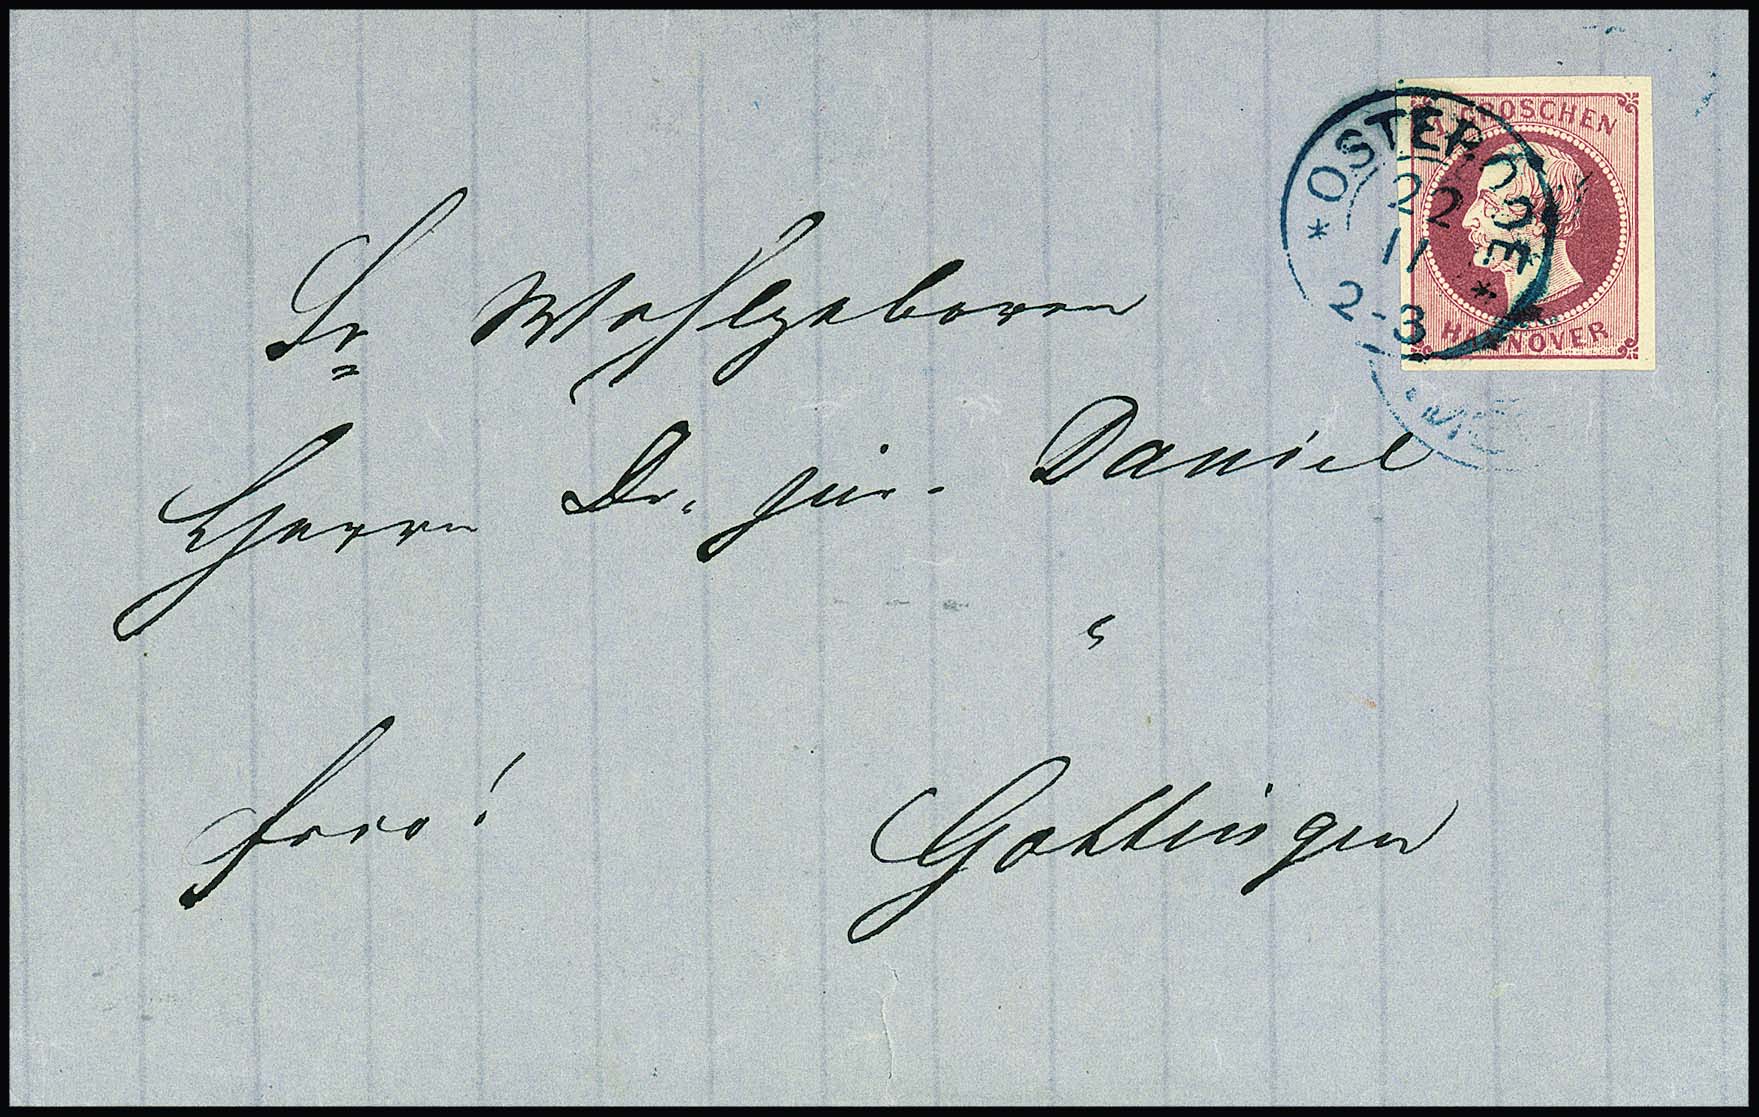 1 GROSCHEN
HANNOVER
* OSTERODE *
22
11
2-3
Sr Wohlgeboren
Herrn Dr. jur. Daniel
frco!
Göttingen